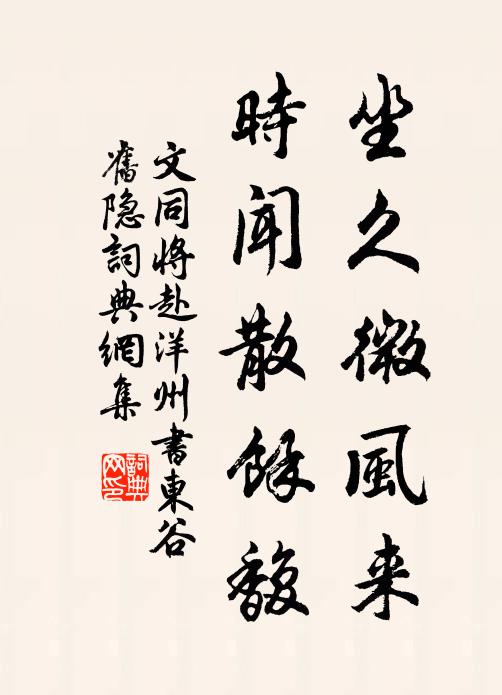 坐久微風来
時闻散餘馥
文同将赴洋州書東谷
舊隐詞典網集
詞典
网印